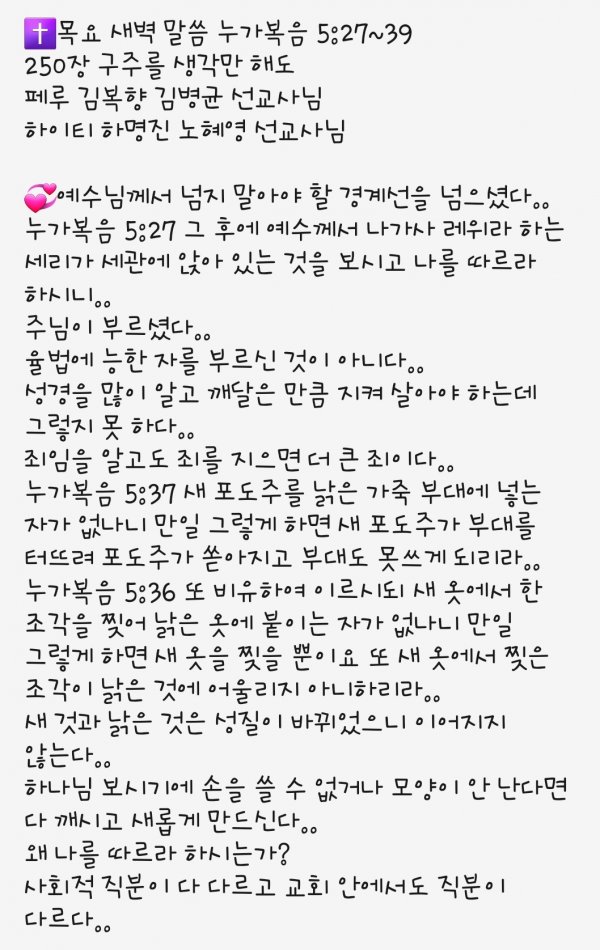 ✝️목요 새벽 말씀 누가복음 5:27~39
250장 구주를 생각만 해도
페루 김복향 김병균 선교사님
하이티 하명진 노혜영 선교사님
💞예수님께서 넘지 말아야 할 경계선을 넘으셨다..
누가복음 5:27 그 후에 예수께서 나가사 레위라 하는
세리가 세관에 앉아 있는 것을 보시고 나를 따르라
하시니..
주님이 부르셨다..
율법에 능한 자를 부르신 것이 아니다..
성경을 많이 알고 깨달은 만큼 지켜 살아야 하는데
그렇지 못 하다..
죄임을 알고도 죄를 지으면 더 큰 죄이다..
누가복음 5:37 새 포도주를 낡은 가죽 부대에 넣는
자가 없나니 만일 그렇게 하면 새 포도주가 부대를
터뜨려 포도주가 쏟아지고 부대도 못쓰게 되리라..
누가복음 5:36 또 비유하여 이르시되 새 옷에서 한
조각을 찢어 낡은 옷에 붙이는 자가 없나니 만일
그렇게 하면 새 옷을 찢을 뿐이요 또 새 옷에서 찢은
조각이 낡은 것에 어울리지 아니하리라..
새 것과 낡은 것은 성질이 바뀌었으니 이어지지
않는다..
하나님 보시기에 손을 쓸 수 없거나 모양이 안 난다면
다 깨시고 새롭게 만드신다..
왜 나를 따르라 하시는가?
사회적 직분이 다 다르고 교회 안에서도 직분이
다르다..